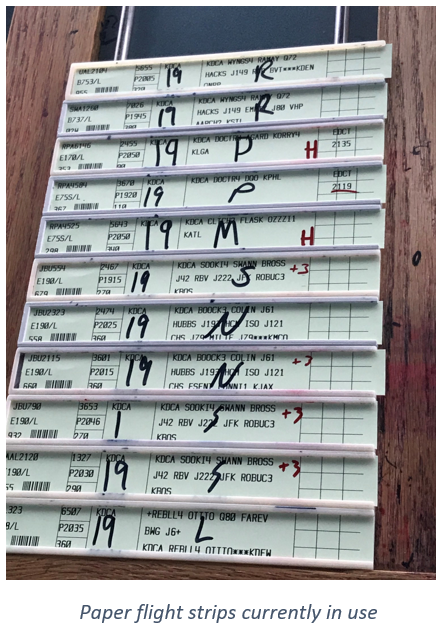 UAL2104 5655 KDCA KDCA WYNGS4 RAMAY Q72
B753/L P2005 19 HACKS J149 BVT***KDEN R
SWA1260 2026 KDCA KDCA WYNGS4 RAMAY Q72
B737/L P1945 19 HACKS J149 J80 VHP R
RPA6146 2455 KDCA KDCA AGARD KORRY4 EDCT
E170/L P2050 19 KLGA P H 2135
RPA4584 3670 KDCA KDCA DOCTR4 DQO KPHL EDCT
E75S/L P1920 19 P 2119
RPA4525 5643 KDCA KDCA FLASK OZZZI1
E75S/L P2050 19 KATL M H
298 360
JBU554 2467 KDCA KDCA SOOK14 SWANN BROSS +3
E190/L P1915 19 J42 RBV J222 JFK ROBUC3 S
679 270 KBOS
JBU2323 2474 KDCA KDCA BOOCK3 COLIN J61
E190/L P2025 19 HUBBS J193 HCM ISO J121 N
558 360
JBU2115 3601 KDCA KDCA BOOCK3 COLIN J61 +3
E190/L P2015 19 HUBBS J193 HCM ISO J121 N
660 360 CHS ESENT KJAX
JBU790 3653 KDCA KDCA SOOK14 SWANN BROSS +3
E190/L P2046 1 J42 RBV J222 JFK ROBUC3 S
932 270 KBOS
AAL2120 1327 KDCA KDCA SOOK14 SWANN BROSS +3
E190/L P2030 19 J42 RBV J222 JFK ROBUC3 S
290 KBOS
323 6507 KDCA +REBLL4 OTTTO Q80 FAREV
P2035 19 BWG J6+ L
360 KDCA REBLL4 OTTTO***KDFW
Paper flight strips currently in use